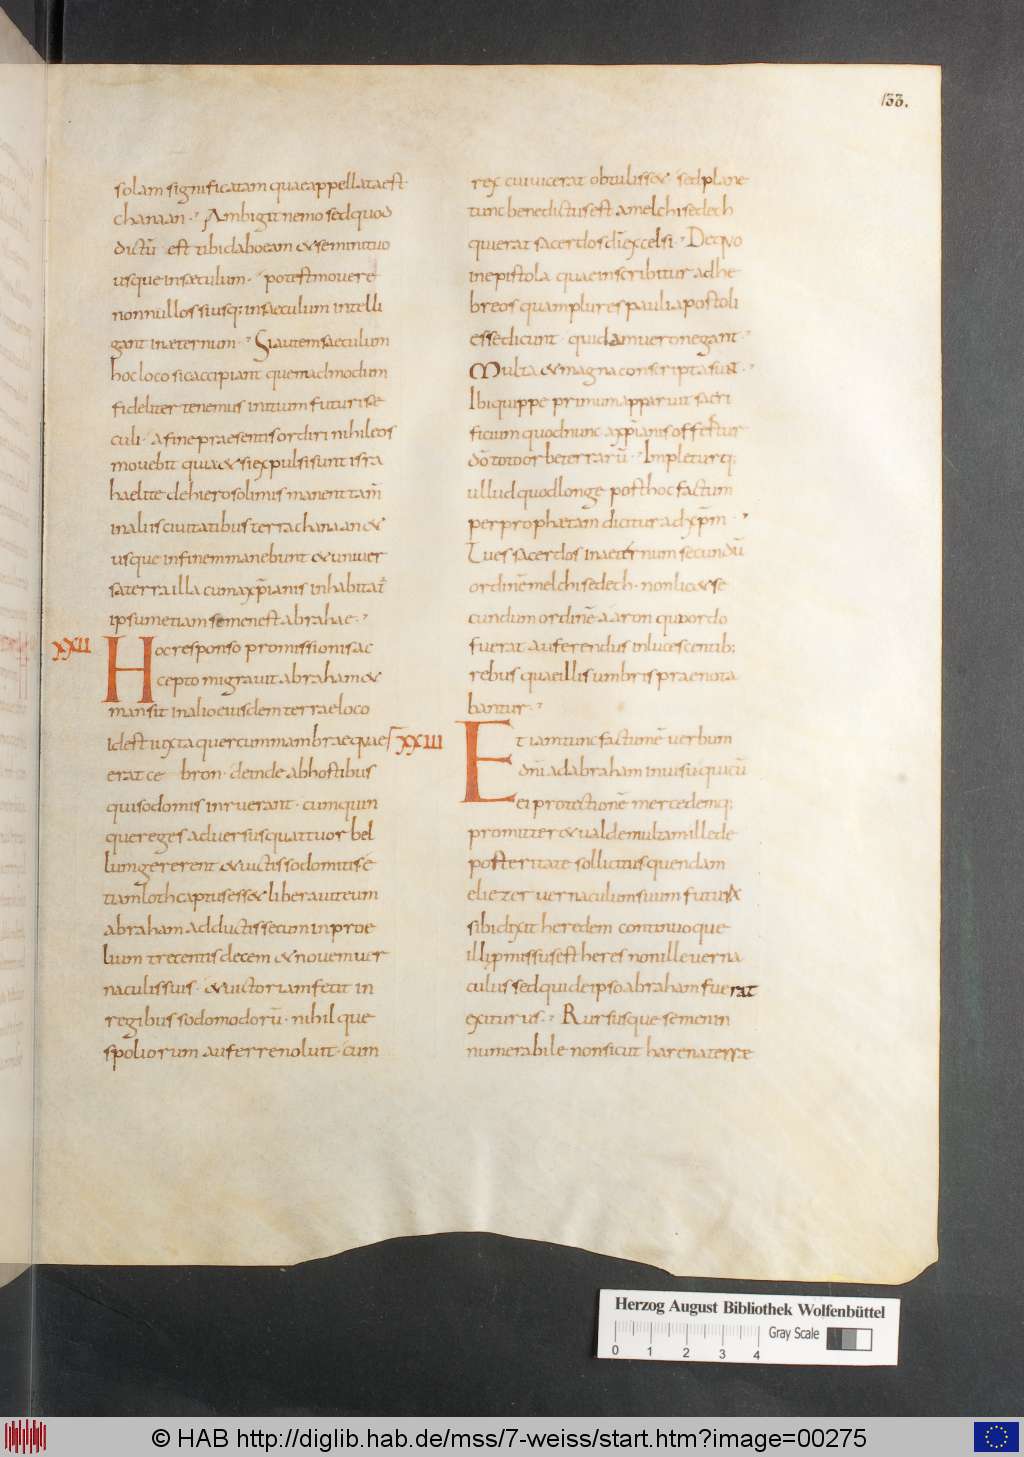 133.
solam significatam quae appellata est
chanaan. Ambigit nemo sed quod
dictū est tibi dabo eam & semini tuo
usque in sæculum. potest movere
nonnullos si usq; in saeculum intelli
gant in æternum. Si autem saeculum
hoc loco sic accipiant quemadmodum
fideliter tenemus initium futuri sæ
culi. a fine praesentis ordiri nihil eos
movebit quia & si expulsi sunt isra
haelite de hierosolimis manent tam̄
in aliis civitatibus terrae chanaan &
usque in finem manebunt & univer
sa terra illa cum a xp̄ianis inhabitat̄
ipsum etiam semen est abrahae.
XXII
Hoc responso promissionis ac
cepto migravit abraham &
mansit in alio eiusdem terrae loco
id est iuxta quercum mambrae quae
erat ce bron. deinde ab hostibus
qui sodomis inruerant. cum quin
que reges adversus quattuor bel
lum gererent & victis sodomitis e
tiam loth captus ess& liberavit eum
abraham adductis secum in proe
lium trecentis decem & novem ver
naculis suis. & victoriam fecit in
regibus sodomodorū. nihilque
spoliorum auferre noluit. cum
rex cui vicerat obtuliss& sed plane
tunc benedictus est a melchisedech
qui erat sacerdos dī excelsi. De quo
in epistola quae inscribitur ad he
breos quam plures pauli apostoli
esse dicunt. quidam vero negant.
Multa & magna conscripta sunt.
Ibi quippe primum apparuit sacri
ficium quod nunc a xp̄ianis offertur
dō toto orbe terrarū. Impletur q;
ullud quod longe post hoc factum
per prophætam dicitur ad xp̄m.
Tu es sacerdos in aeternum secundū
ordinē melchisedech. non lic& se
cundum ordinē aaron qui ordo
fuerat auferendus inlucescentib;
rebus quae illis umbris praenota
bantur.
XXIII
Etiam tunc factum ē verbum
dn̄i ad abraham in visu qui cū
ei protectionē mercedemq;
promitter& valde multam ille de
posteritate sollicitus quendam
eliezer vernaculum suum futur&
sibi dixit heredem continuoque
illi p̱missus est heres non ille verna
culus sed qui de ipso abraham fuerat
exiturus. Rursusque semen in
numerabile non sicut harena terræ
Herzog August Bibliothek Wolfenbüttel
Gray Scale
0 1 2 3 4
© HAB http://diglib.hab.de/mss/7-weiss/start.htm?image=00275